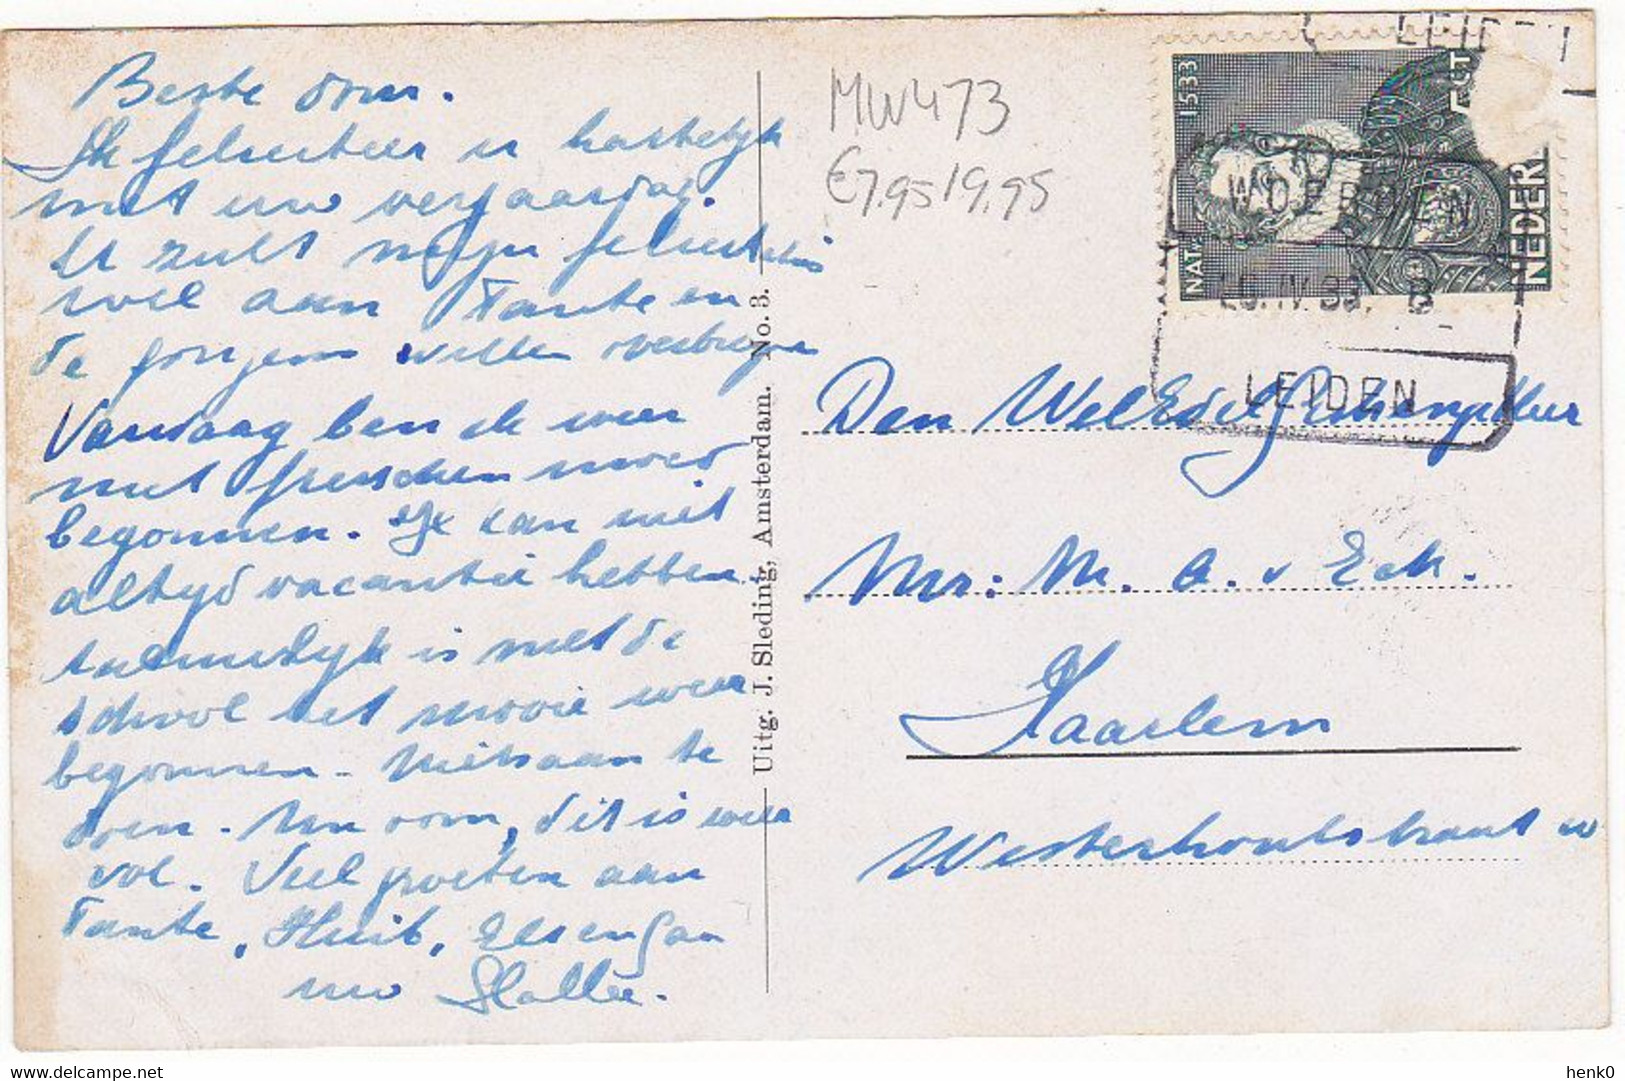 Beste Oom.
Ik feliciteer u hartelijk
met uw verjaardag.
U zult mijn felicitatie
wel aan Tante en
de jongens willen overbrengen
Vandaag ben ik weer
met frisschen moed
begonnen. Je kan niet
altijd vacantie hebben.
Langzamerhand is met de
school het mooie weer
begonnen. Niets aan te
doen. Nu oom, dit is weer
vol. Veel groeten aan
Tante, Huib, Els en Jan
uw
Uitg. J. Sleding, Amsterdam. No. 3.
MW473
€7.95/9.95
LEIDEN
1533
NAT
NEDER
WOERDEN
IV 33. 8
LEIDEN
Den WelEdelGestrengeHeer
Mr: M. A. v Eck.
Haarlem
Westerhoutstraat
henk0